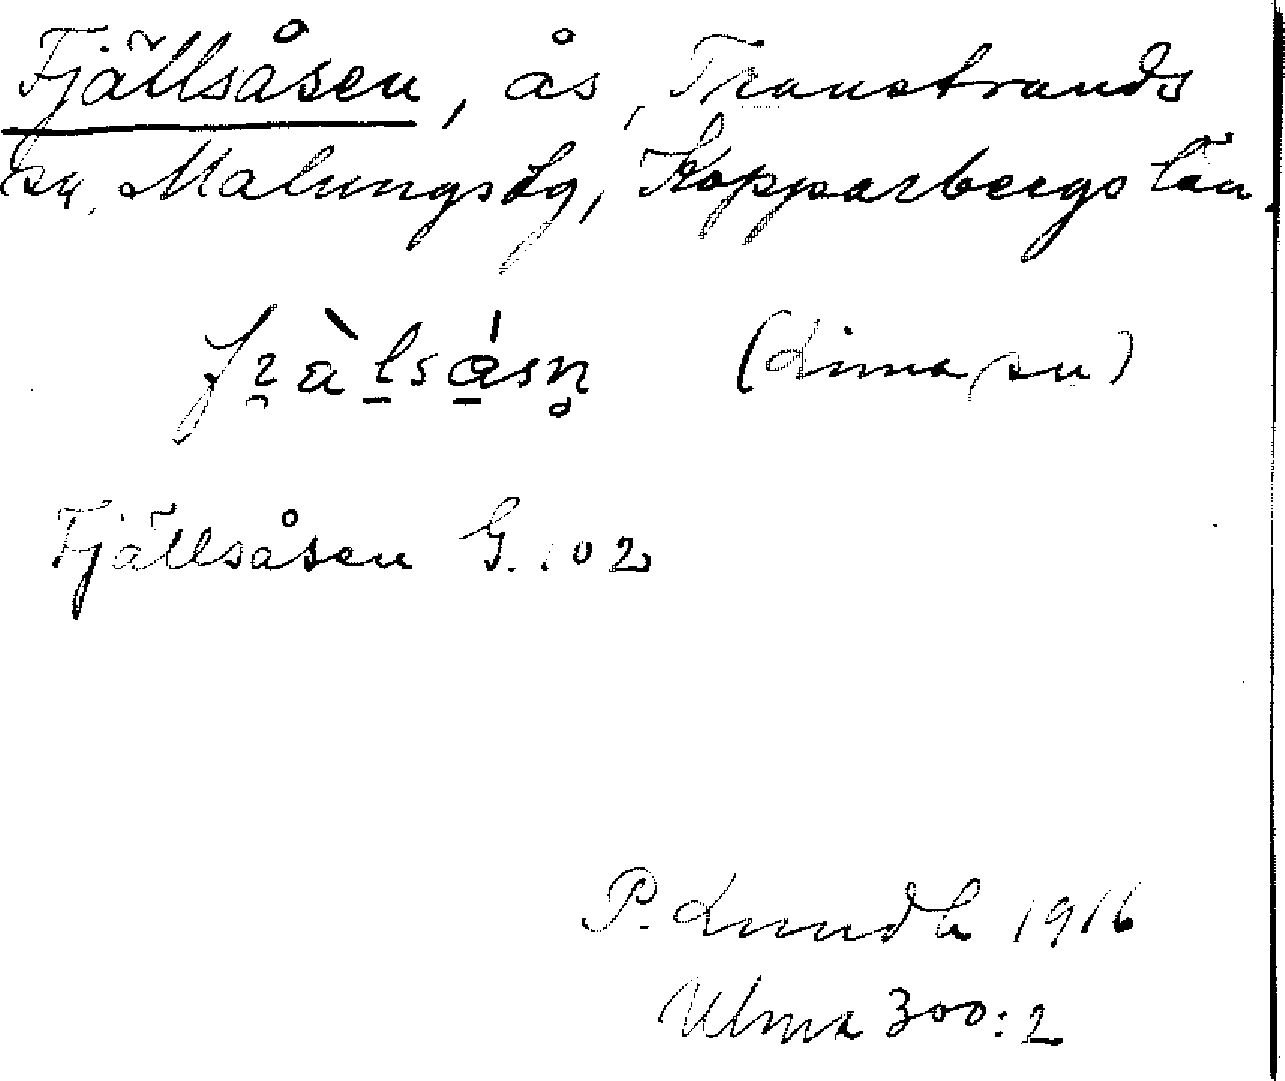 Fjällsåsen, ås, Transtrands
sn, Malungs tg, Kopparbergs län.
(Lima sn)
Fjällsåsen G. 102
P. Lundh 1916
Ulma 300:2